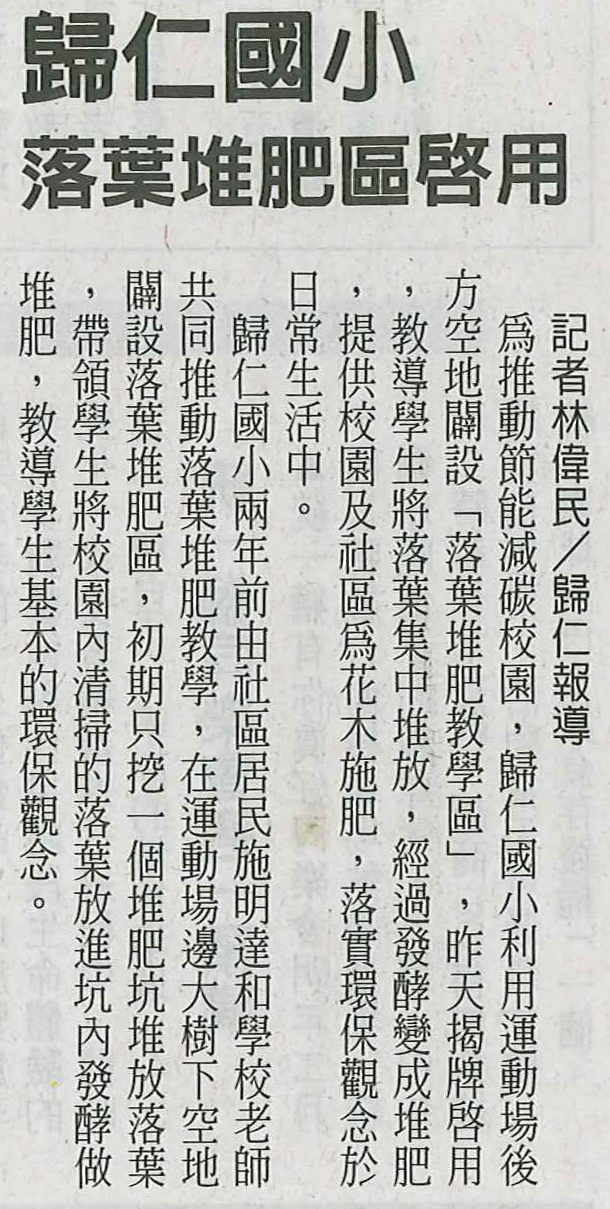 歸仁國小
落葉堆肥區啓用
記者林偉民／歸仁報導
爲推動節能減碳校園，歸仁國小利用運動場後
方空地闢設「落葉堆肥教學區」，昨天揭牌啓用
，教導學生將落葉集中堆放，經過發酵變成堆肥
，提供校園及社區爲花木施肥，落實環保觀念於
日常生活中。
歸仁國小兩年前由社區居民施明達和學校老師
共同推動落葉堆肥教學，在運動場邊大樹下空地
闢設落葉堆肥區，初期只挖一個堆肥坑堆放落葉
，帶領學生將校園內清掃的落葉放進坑內發酵做
堆肥，教導學生基本的環保觀念。